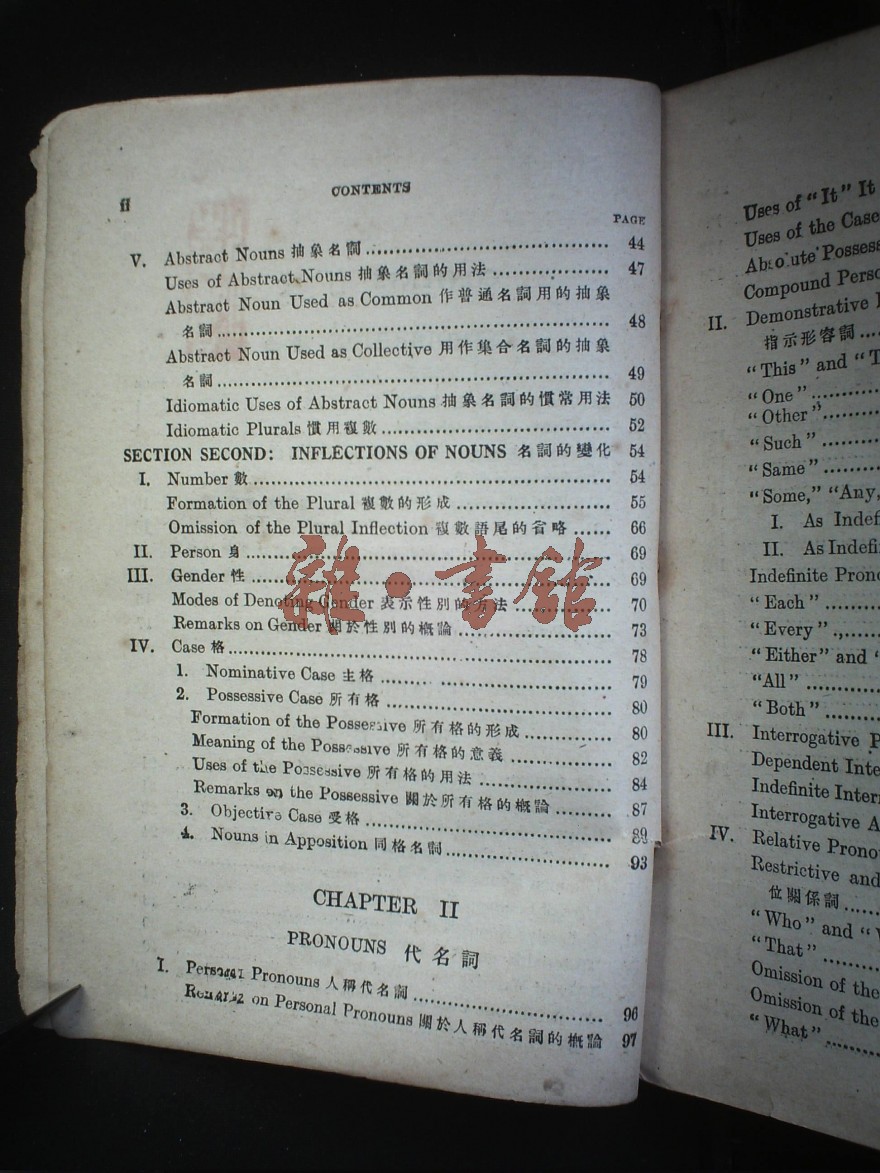 ii
CONTENTS
PAGE
V. Abstract Nouns 抽象名詞 44
Uses of Abstract Nouns 抽象名詞的用法 47
Abstract Noun Used as Common 作普通名詞用的抽象
名詞 48
Abstract Noun Used as Collective 用作集合名詞的抽象
名詞 49
Idiomatic Uses of Abstract Nouns 抽象名詞的慣常用法 50
Idiomatic Plurals 慣用複數 52
SECTION SECOND: INFLECTIONS OF NOUNS 名詞的變化 54
I. Number 數 54
Formation of the Plural 複數的形成 55
Omission of the Plural Inflection 複數語尾的省略 66
II. Person 身 69
III. Gender 性 69
Modes of Denoting Gender 表示性別的方法 70
Remarks on Gender 關於性別的概論 73
IV. Case 格 78
1. Nominative Case 主格 79
2. Possessive Case 所有格 80
Formation of the Possessive 所有格的形成 80
Meaning of the Possessive 所有格的意義 82
Uses of the Possessive 所有格的用法 84
Remarks on the Possessive 關於所有格的概論 87
3. Objective Case 受格 89
4. Nouns in Apposition 同格名詞 93
CHAPTER II
PRONOUNS 代名詞
I. Personal Pronouns 人稱代名詞 96
Remarks on Personal Pronouns 關於人稱代名詞的概論 97
雜·書館
Uses of "It" It
Uses of the Case
Absolute Possess
Compound Perso
II. Demonstrative
指示形容詞
"This" and "T
"One"
"Other"
"Such"
"Same"
"Some," "Any,
I. As Indef
II. As Indefi
Indefinite Prono
"Each"
"Every"
"Either" and "
"All"
"Both"
III. Interrogative P
Dependent Inte
Indefinite Interr
Interrogative A
IV. Relative Prono
Restrictive and
位關係詞
"Who" and "W
"That"
Omission of the
Omission of the
"What"